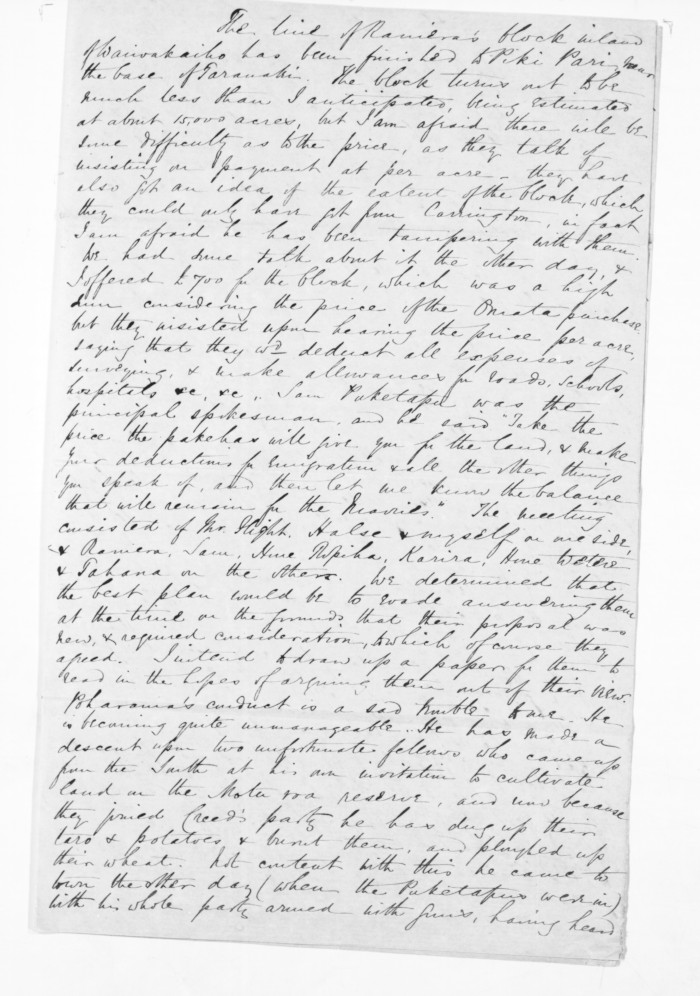 The line of Raniera's block inland
of Waiwakaiho has been finished to Piki Pari, near
the base of Taranaki. The block turns out to be
much less than I anticipated, being estimated
at about 15,000 acres, but I am afraid there will be
some difficulty as to the price, as they talk of
insisting on payment at per acre - they have
also got an idea of the extent of the block, which
they could only have got from Carrington, in fact
I am afraid he has been tampering with them.
We had some talk about it the other day, &
I offered £700 for the block, which was a high
sum considering the price of the Omata purchase
but they insisted upon hearing the price per acre,
saying that they wd deduct all expenses of
surveying, & make allowances for roads, schools,
hospitals &c, &c,. Sam Puketapu was the
principal spokesman, and he said "Take the
price the pakehas will give you for the land, & make
your deductions for emigration & all the other things
you speak of, and then let me know the balance
that will remain for the Maories." The meeting
consisted of Mr. Flight, Halse & myself on one side,
& Raniera, Sam, Hone Ropiha, Karira, Hone
& Tahana on the other. We determined that
the best plan would be to evade answering them
at the time on the grounds that their proposal was
new, & required consideration, to which of course they
agreed. I intend to draw up a paper for them to
read in the hopes of arguing them out of their view.
Poharama's conduct is a sad trouble to me. He
is becoming quite unmanageable. He has made a
descent upon two unfortunate fellows who came up
from the South at his own invitation to cultivate
land on the Motu roa reserve, and now because
they joined Creed's party he has dug up their
taro & potatoes & burnt them, and ploughed up
their wheat. Not content with this he came to
town the other day (when the Puketapus were in)
with his whole party armed with guns, having heard